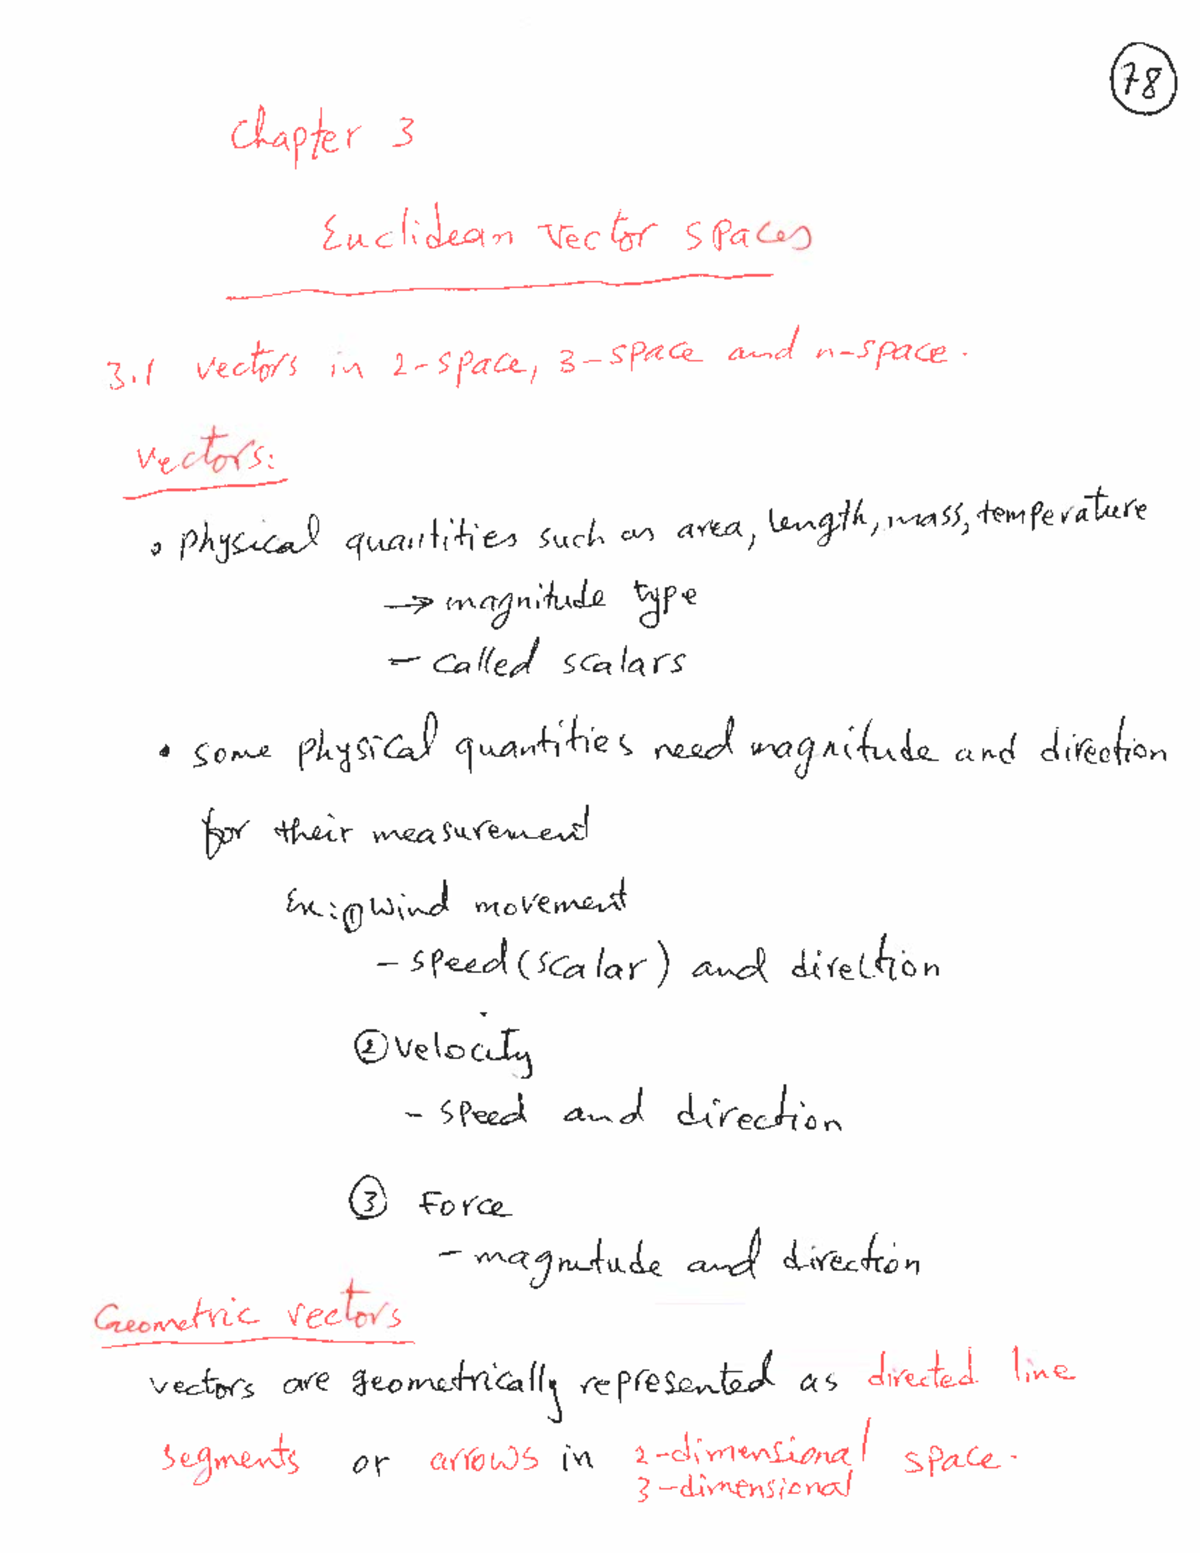 78
Chapter 3
Euclidean Vector Spaces
3.1 vectors in 2-space, 3-space and n-space.
Vectors:
• physical quantities such as area, length, mass, temperature
→ magnitude type
- called scalars
• some physical quantities need magnitude and direction
for their measurement
Ex: ① Wind movement
- speed (scalar) and direction
② Velocity
- speed and direction
③ Force
- magnitude and direction
Geometric vectors
vectors are geometrically represented as directed line
segments or arrows in 2-dimensional space.
3-dimensional